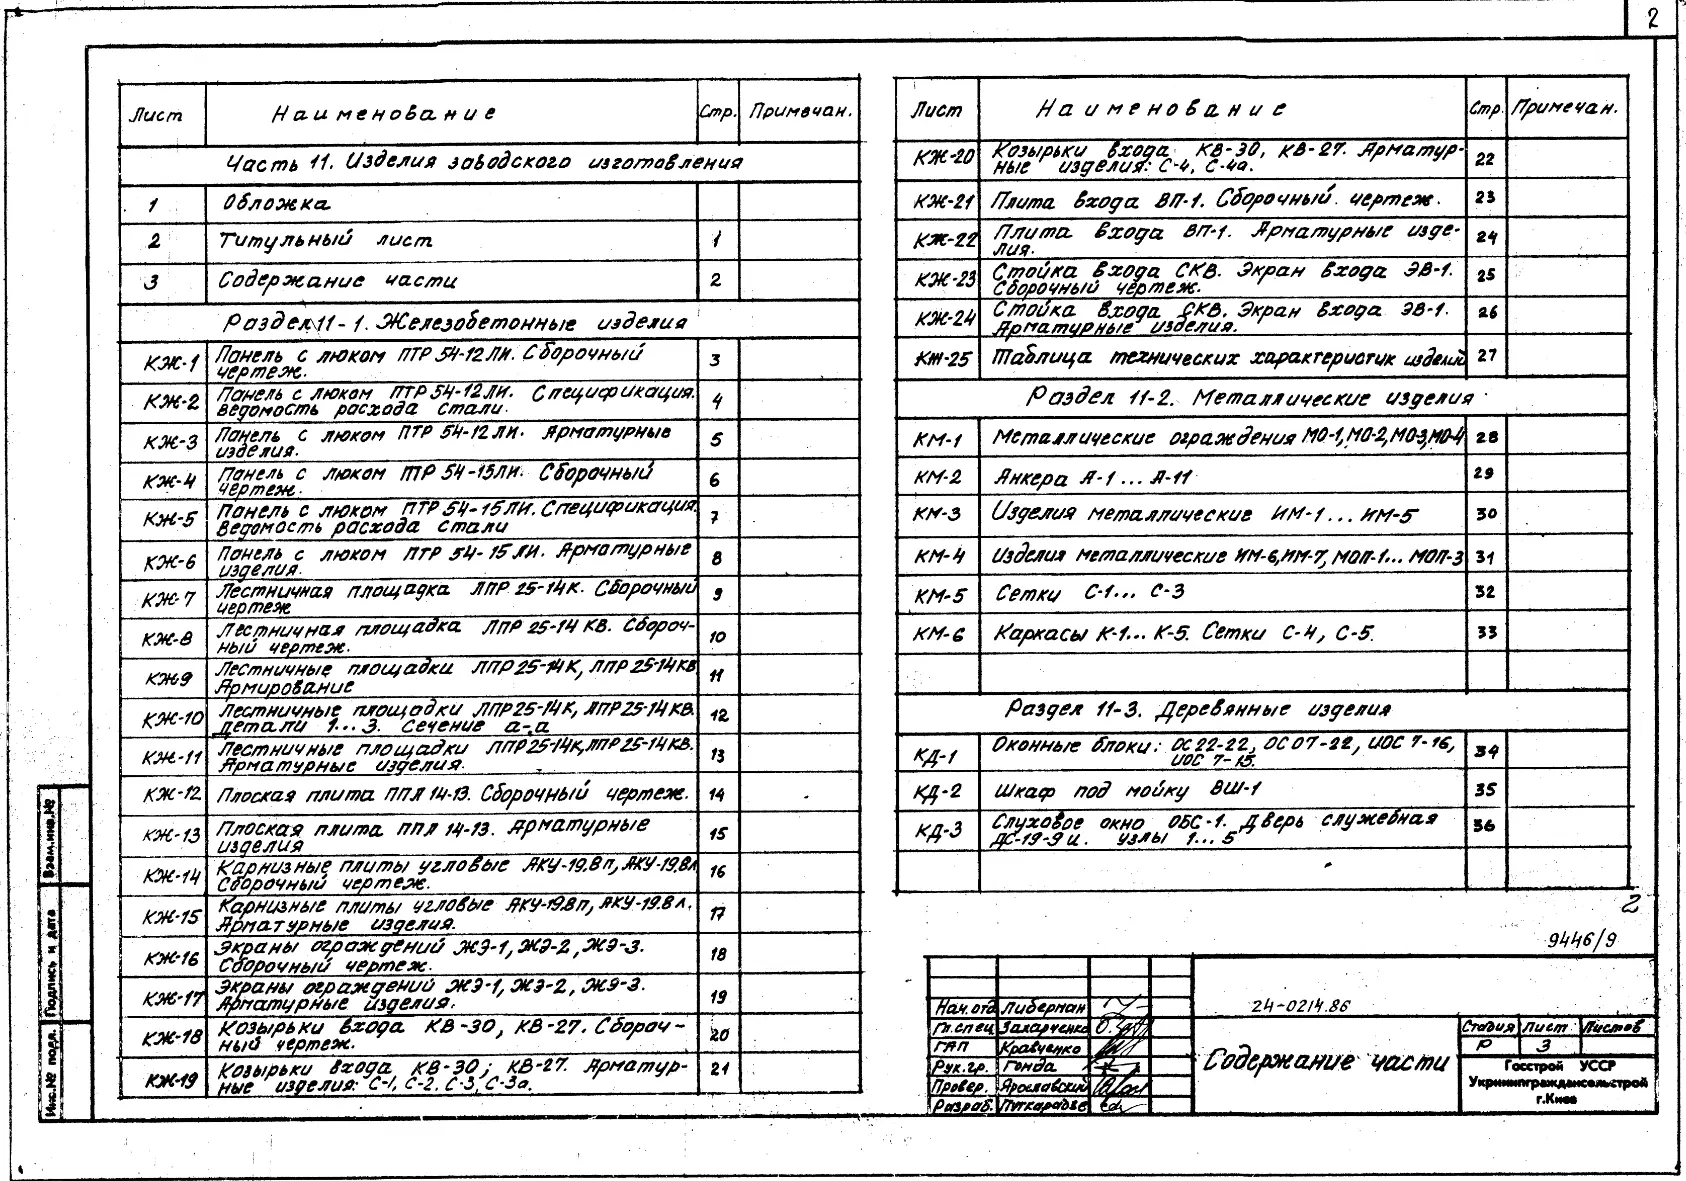 2
Лист Наименование Стр. Примечан.
Часть 11. Изделия заводского изготовления
1 Обложка
2 Титульный лист 1
3 Содержание части 2
Раздел 11-1. Железобетонные изделия
КЖ-1 Панель с люком ПТР 54-12ЛИ. Сборочный
чертеж. 3
КЖ-2 Панель с люком ПТР 54-12ЛИ. Спецификация.
Ведомость расхода стали. 4
КЖ-3 Панель с люком ПТР 54-12ЛИ. Арматурные
изделия. 5
КЖ-4 Панель с люком ПТР 54-15ЛИ. Сборочный
чертеж. 6
КЖ-5 Панель с люком ПТР 54-15ЛИ. Спецификация.
Ведомость расхода стали 7
КЖ-6 Панель с люком ПТР 54-15ЛИ. Арматурные
изделия. 8
КЖ-7 Лестничная площадка ЛПР 25-14К. Сборочный
чертеж 9
КЖ-8 Лестничная площадка ЛПР 25-14 КВ. Сбороч-
ный чертеж. 10
КЖ-9 Лестничные площадки ЛПР 25-14К, ЛПР 25-14КВ
Армирование 11
КЖ-10 Лестничные площадки ЛПР25-14К, ЛПР25-14КВ.
Детали 1...3. Сечение а-а 12
КЖ-11 Лестничные площадки ЛПР25-14К, ЛПР25-14КВ.
Арматурные изделия. 13
КЖ-12 Плоская плита ППЛ 14-13. Сборочный чертеж. 14
КЖ-13 Плоская плита ППЛ 14-13. Арматурные
изделия 15
КЖ-14 Карнизные плиты угловые АКУ-19.8п, АКУ-19.8л
Сборочный чертеж. 16
КЖ-15 Карнизные плиты угловые АКУ-19.8п, АКУ-19.8л.
Арматурные изделия. 17
КЖ-16 Экраны ограждений ЖЭ-1, ЖЭ-2, ЖЭ-3.
Сборочный чертеж. 18
КЖ-17 Экраны ограждений ЖЭ-1, ЖЭ-2, ЖЭ-3.
Арматурные изделия. 19
КЖ-18 Козырьки входа КВ-30, КВ-27. Сбороч-
ный чертеж. 20
КЖ-19 Козырьки входа КВ-30; КВ-27. Арматур-
ные изделия: С-1, С-2. С-3, С-3а. 21
Лист Наименование Стр. Примечан.
КЖ-20 Козырьки входа КВ-30, КВ-27. Арматур-
ные изделия: С-4, С-4а. 22
КЖ-21 Плита входа ВП-1. Сборочный чертеж. 23
КЖ-22 Плита входа ВП-1. Арматурные изде-
лия. 24
КЖ-23 Стойка входа СКВ. Экран входа ЭВ-1.
Сборочный чертеж. 25
КЖ-24 Стойка входа СКВ. Экран входа ЭВ-1.
Арматурные изделия. 26
КЖ-25 Таблица технических характеристик изделий 27
Раздел 11-2. Металлические изделия
КМ-1 Металлические ограждения МО-1, МО-2, МО-3, МО-4 28
КМ-2 Анкера А-1 ... А-11 29
КМ-3 Изделия металлические ИМ-1 ... ИМ-5 30
КМ-4 Изделия металлические ИМ-6, ИМ-7, МОП-1... МОП-3 31
КМ-5 Сетки С-1... С-3 32
КМ-6 Каркасы К-1... К-5. Сетки С-4, С-5. 33
Раздел 11-3. Деревянные изделия
КД-1 Оконные блоки: ОС22-22, ОС07-22, ИОС 7-16,
ИОС 7-15. 34
КД-2 Шкаф под мойку ВШ-1 35
КД-3 Слуховое окно ОБС-1. Дверь служебная
ДС-19-9И. Узлы 1...5 36
2
9446/9
Взам.инв.№
Подпись и дата
Инв.№ подл.
Нач.отд Либерман
Гл.спец Захарченко
ГАП Кравченко
Рук.гр. Гонда
Провер. Ярославский
Разраб. Путкарадзе
24-0214.86
Содержание части
Стадия Лист Листов
Р 3
Госстрой УССР
Укрниипграждансельстрой
г.Киев